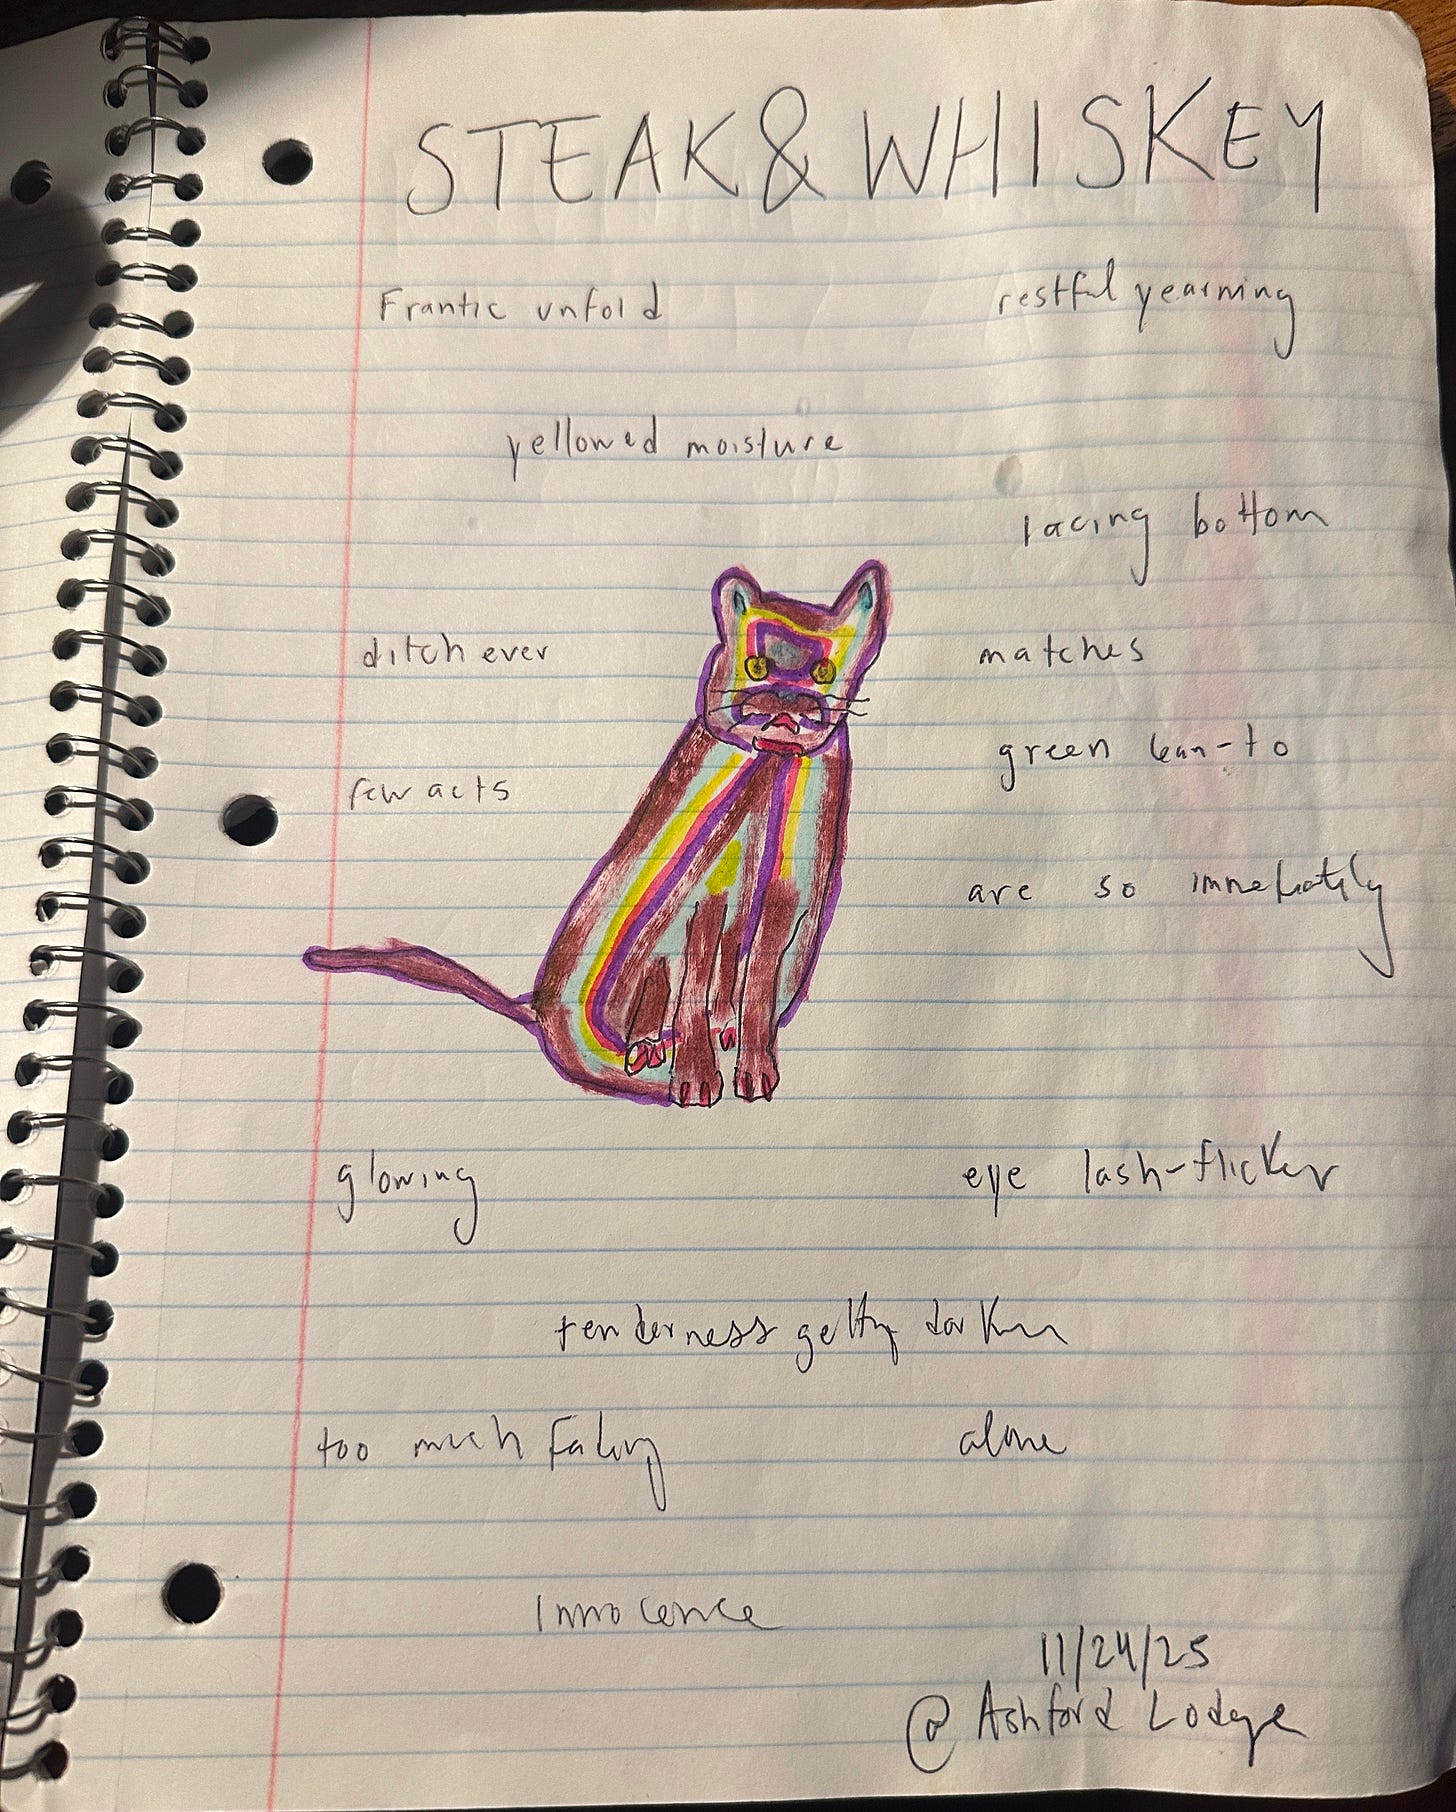 STEAK & WHISKEY
Frantic unfold restful yearning
yellowed moisture
racing bottom
ditch ever matches
green lean-to
few acts
are so immediately
glowing eye lash-flicker
tenderness getting darker
too much alone
Innocence
11/24/25
@ Ashford Lodge